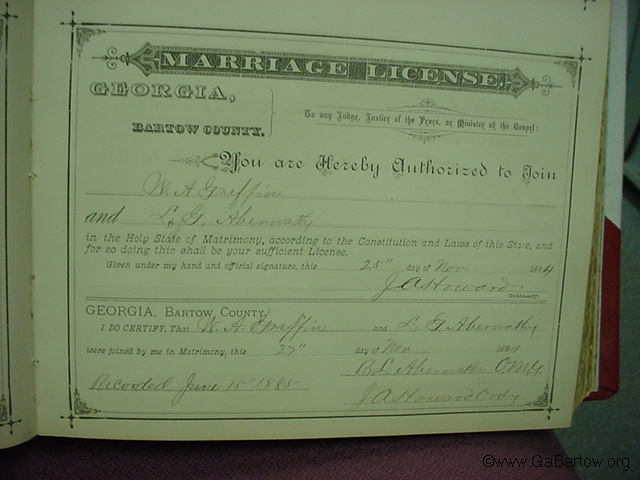 MARRIAGE LICENSE.
GEORGIA,
BARTOW COUNTY.
To any Judge, Justice of the Peace, or Minister of the Gospel:
You are Hereby Authorized to Join
W. A Griffin
and L. G. Abernathy
in the Holy State of Matrimony, according to the Constitution and Laws of this State, and
for so doing this shall be your sufficient License.
Given under my hand and official signature, this 25" day of Nov 1884
J A Howard
Ordinary.
GEORGIA, BARTOW COUNTY,
I DO CERTIFY, That W. A. Griffin and L. G Abernathy
were joined by me in Matrimony, this 27" day of Nov 1884
B L Abernathy
Recorded June 15" 1885
J A Howard Ordy
©www.GaBartow.org